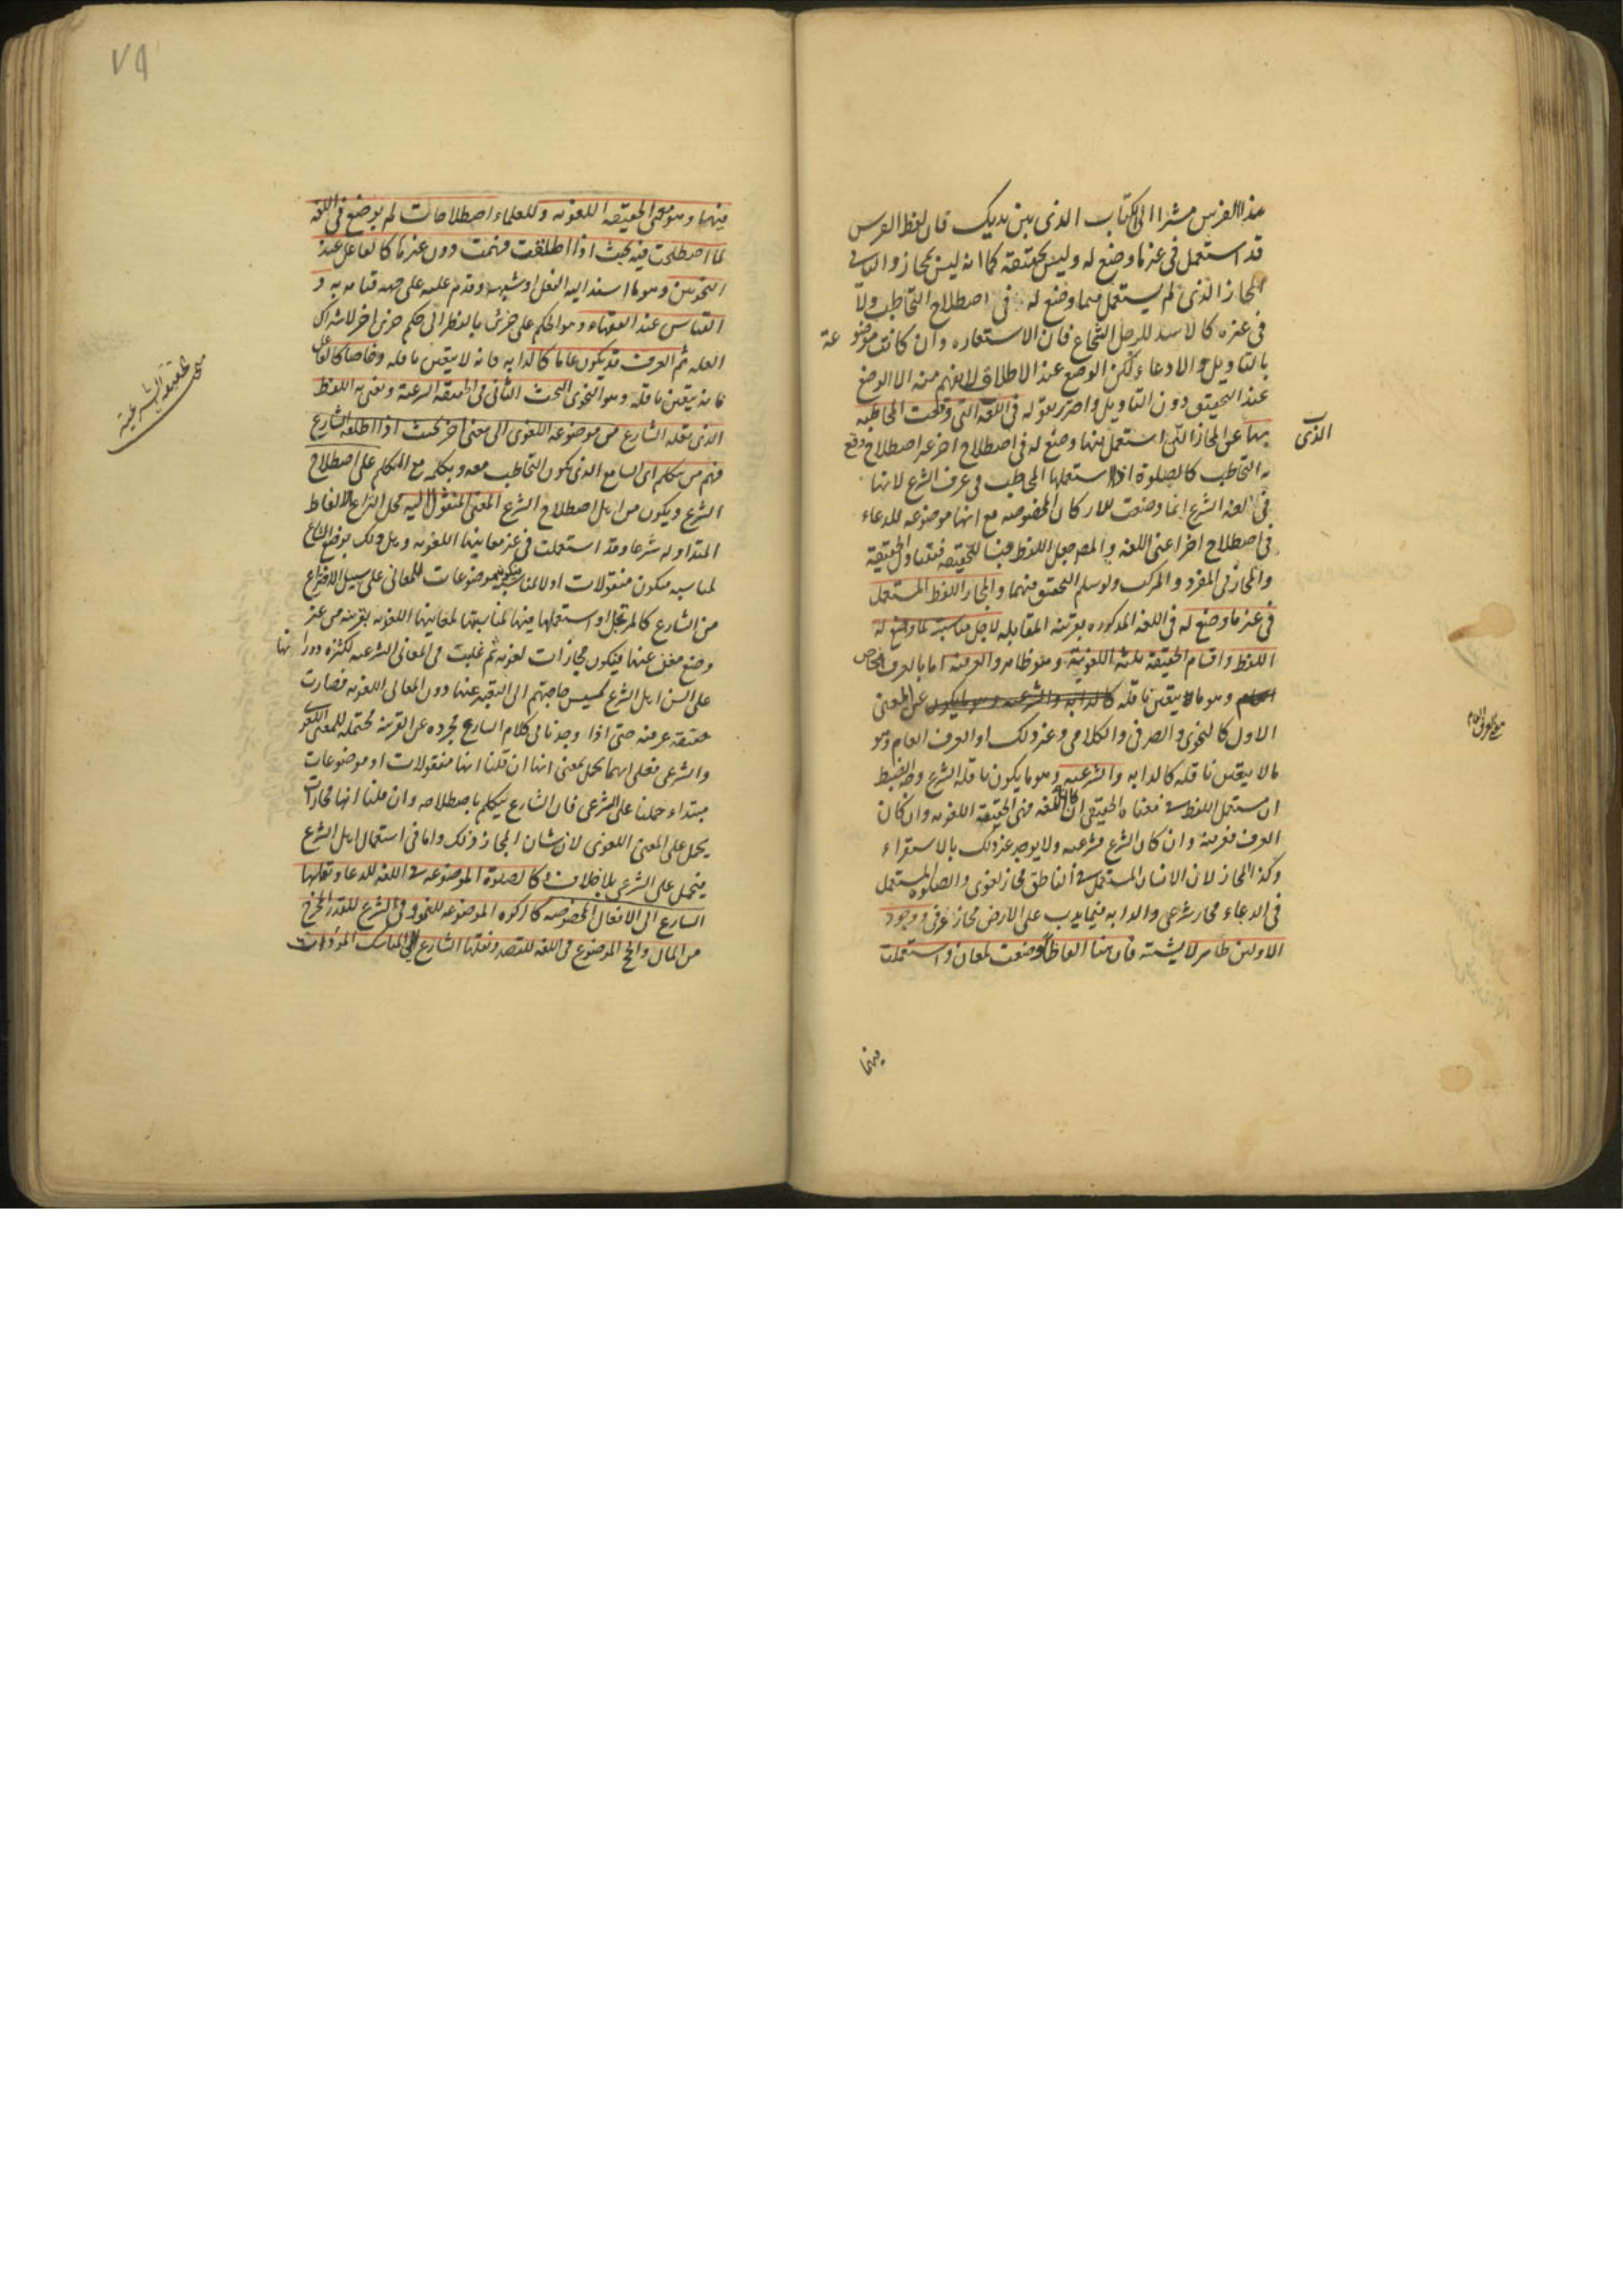 هذا الفرس مشيرا الى الكتاب الذى بين يديك فان لفظ الفرس
قد استعمل فى غير ما وضع له وليس بحقيقة كما انه ليس بمجاز والثانى
المجاز الذى لم يستعمل فيما وضع له فى اصطلاح التخاطب ولا
فى غيره كالاسد للرجل الشجاع فان الاستعاره وان كانت موضوعة
بالتاويل والادعاء لكن الوضع عند الاطلاق لا يفهم منه الا الوضع
عند التحقيق دون التاويل واحترز بقوله فى اللغة التى وقعت المخاطبه
بها عن المجاز الذى استعمل فيما وضع له فى اصطلاح اخر غير اصطلاح وقع
الذى
به التخاطب كالصلوة اذا استعملها المخاطب فى عرف الشرع لانها
فى لغه الشرع انما وضعت للاركان المخصوصه مع انها موضوعه للدعاء
فى اصطلاح اخر اعنى اللغه والمص جعل اللفظ جنسا للحقيقه فيتناول الحقيقة
والمجاز فى المفرد والمركب ولو سلم التحقق فيهما والمجاز اللفظ المستعمل
فى غير ما وضع له فى اللغه المذكوره بقرينه المقابله لاجل مناسبة لما وضع له
اللفظ واقسام الحقيقة ثلثه اللغوية وهو ظاهر والعرفيه اما بالعرف الخاص
وهو ما يتعين ناقله عن المعنى
الاول كالنحوى والصرفى والكلامى وغير ذلك او العرف العام وهو
مالا يتعين ناقله كالدابه والشرعيه وهو ما يكون ناقله الشرع
ان استعمل اللفظ فى معناه الحقيقى ان كان اللغه فهى الحقيقة اللغويه وان كان
العرف فعرفية وان كان الشرع فشرعيه ولا يوجد غير ذلك بالاستقراء
وكذا المجاز لان الانسان المستعمل فى الناطق مجاز لغوى والصلوه المستعمل
فى الدعاء مجاز شرعى والدابه فيما يدب على الارض مجاز عرفى ووجود
الاولين ظاهر لا يشتبه فان هنا الفاظا وضعت لمعان واستعملت
فيها
٧٩
فيها وهو معنى الحقيقه اللغويه وللعلماء اصطلاحات لم يوضع فى اللغه
لما اصطلحت فيه بحيث اذا اطلقت فهمت دون غيرها كالفاعل عند
النحويين وهو ما اسند اليه الفعل او شبهه وقدم عليه على جهه قيامه به و
القياس عند الفقهاء وهو الحكم على جزئى بالنظر الى حكم جزئى اخر لاشتراك
العله ثم العرف قد يكون عاما كالدابه فانه لا يتعين ناقله وخاصا كالفاعل
فانه يتعين ناقله وهو النحوى البحث الثانى فى الحقيقه الشرعية ونعنى به اللفظ
الذى نقله الشارع من موضوعه اللغوى الى معنى اخر بحيث اذا اطلقه الشارع
فهم من يتكلم اى السامع الذى يكون التخاطب معه ويتكلم مع المتكلم على اصطلاح
الشرع ويكون من اهل اصطلاح الشرع المعنى المنقول اليه محل النزاع الالفاظ
المتداوله شرعا وقد استعملت فى غير معانيها اللغويه وهل ذلك بوضع الشارع
لمناسبه فيكون منقولات اولا لمناسبة فيكون موضوعات للمعانى على سبيل الاختراع
من الشارع كالمرتجل او استعملها فيها لمناسبتها لمعانيها اللغويه بقرينه من غير
وضع مغن عنها فيكون مجازات لغويه ثم غلبت فى المعانى الشرعيه لكثره دورانها
على السن اهل الشرع لمسيس حاجتهم الى التعبير عنها دون المعانى اللغويه فصارت
حقيقه عرفيه حتى اذا وجدناها فى كلام الشارع مجرده عن القرينه محتمله للمعنى اللغوى
والشرعى فعلى ايهما يحمل بمعنى انها ان قلنا انها منقولات او موضوعات
مبتداء حملنا على الشرعى فان الشارع يتكلم باصطلاحه وان قلنا انها مجازات
يحمل على المعنى اللغوى لان شان المجاز ذلك واما فى استعمال اهل الشرع
فيحمل على الشرعى بلا خلاف كالصلوة الموضوعه فى اللغه للدعا ونقلها
الشارع الى الافعال المخصوصه كالزكوه الموضوعه للنمو وفى الشرع للقدر المخرج
من المال والحج الموضوع فى اللغه للقصد ونقلها الشارع الى المناسك المؤداة